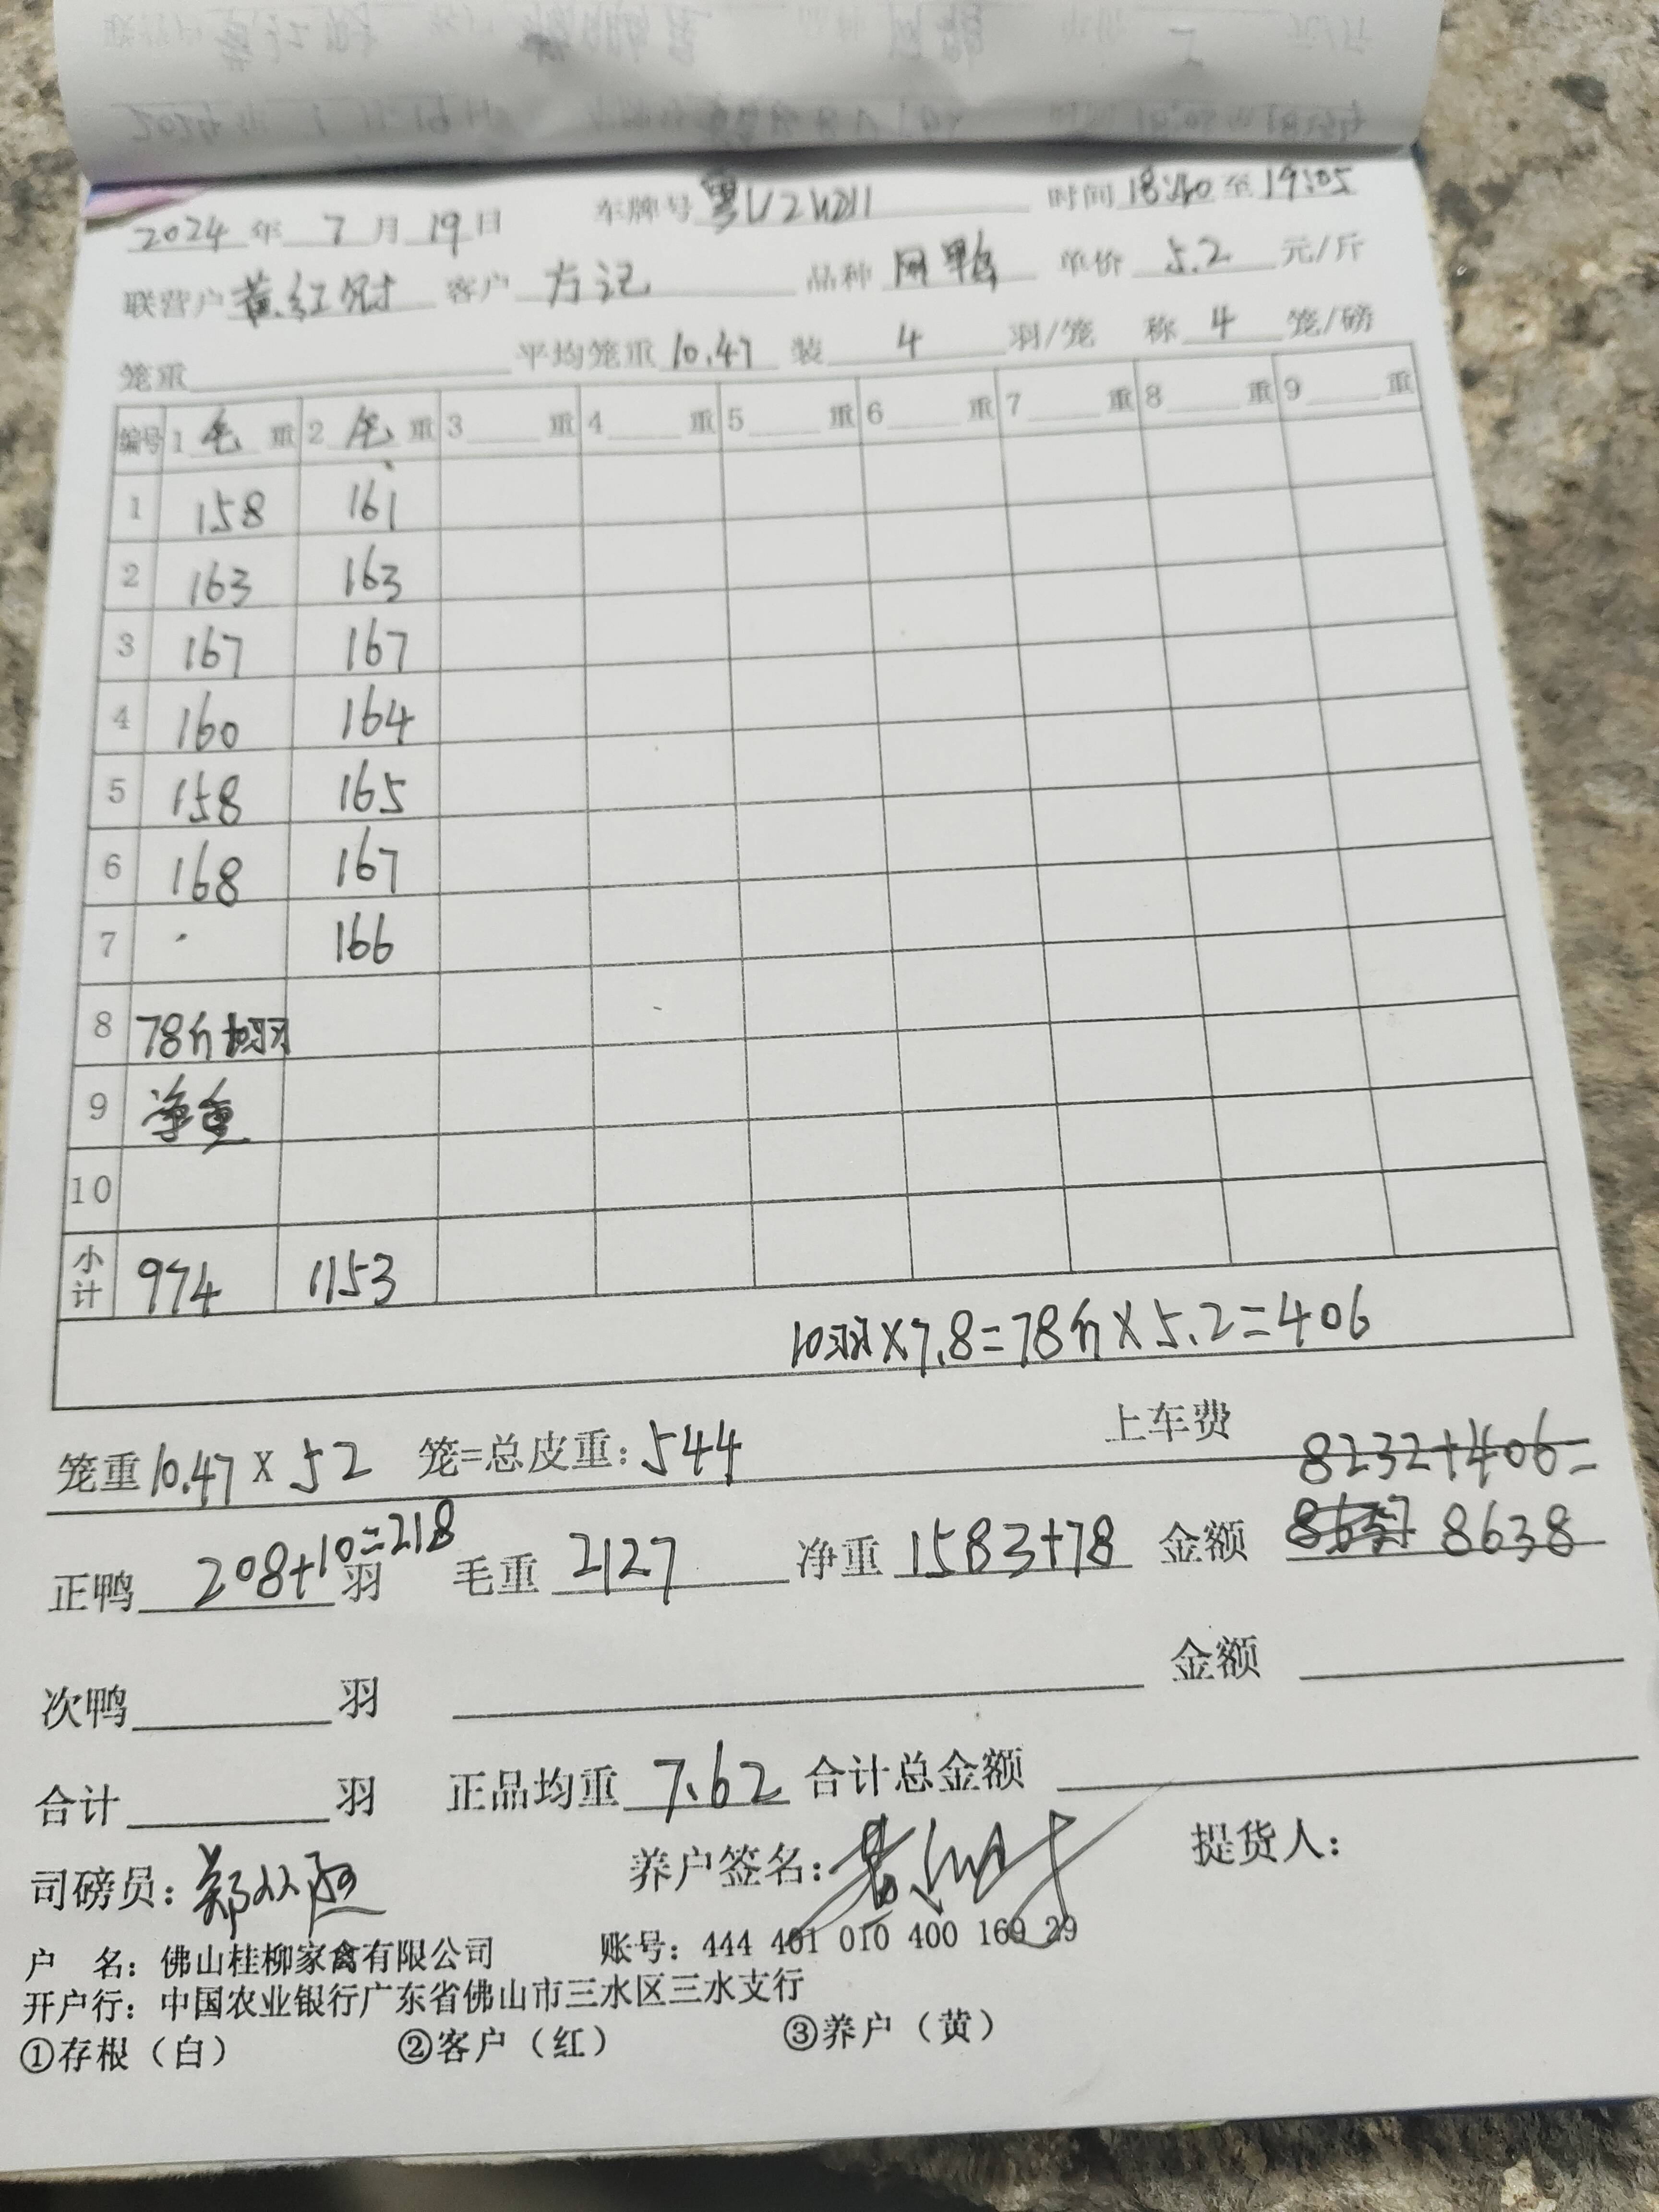 2024年 7月19日 车牌号 时间 18:40 至 19:05
联营户 黄红财 客户 方记 品种 网鸭 单价 5.2 元/斤
笼重 平均笼重 10.47 装 4 羽/笼 称 4 笼/磅
编号 1 毛 重 2 毛 重 3 重 4 重 5 重 6 重 7 重 8 重 9 重
1 158 161
2 163 163
3 167 167
4 160 164
5 158 165
6 168 167
7 166
8 78斤10羽
9 净重
10
小计 974 1153
10羽×7.8=78斤×5.2=406
笼重 10.47 × 52 笼=总皮重: 544 上车费 8232+406=
正鸭 208+10=218 羽 毛重 2127 净重 1583+78 金额 8638
次鸭 羽 金额
合计 羽 正品均重 7.62 合计总金额
司磅员: 养户签名: 提货人:
户 名: 佛山桂柳家禽有限公司 账号: 444 401 010 400 169 29
开户行: 中国农业银行广东省佛山市三水区三水支行
①存根（白） ②客户（红） ③养户（黄）